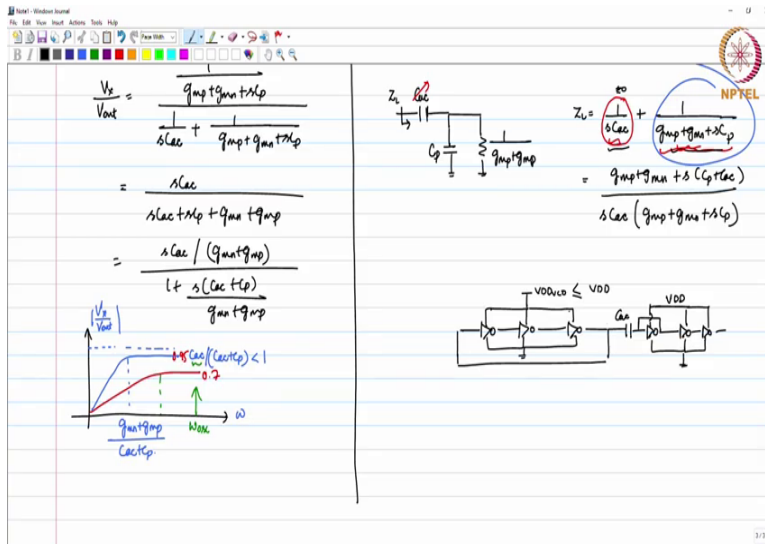 Note1 - Windows Journal
File Edit View Insert Actions Tools Help
Page Width
NPTEL
Vx/Vout = (1/(gmp+gmn+sCp)) / (1/sCac + 1/(gmp+gmn+sCp))
= sCac / (sCac+sCp+gmn+gmp)
= (sCac/(gmn+gmp)) / (1+ s(Cac+Cp)/(gmn+gmp))
|Vx/Vout|
Cac/(Cac+Cp) < 1
0.7
ω
ωosc
(gmn+gmp)/(Cac+Cp)
ZL
Cac
Cp
1/(gmp+gmp)
ZL = 1/sCac + 1/(gmp+gmn+sCp)
= (gmp+gmn+s(Cp+Cac)) / (sCac(gmp+gmn+sCp))
VDDVCO ≤ VDD
Cac
VDD
3/3